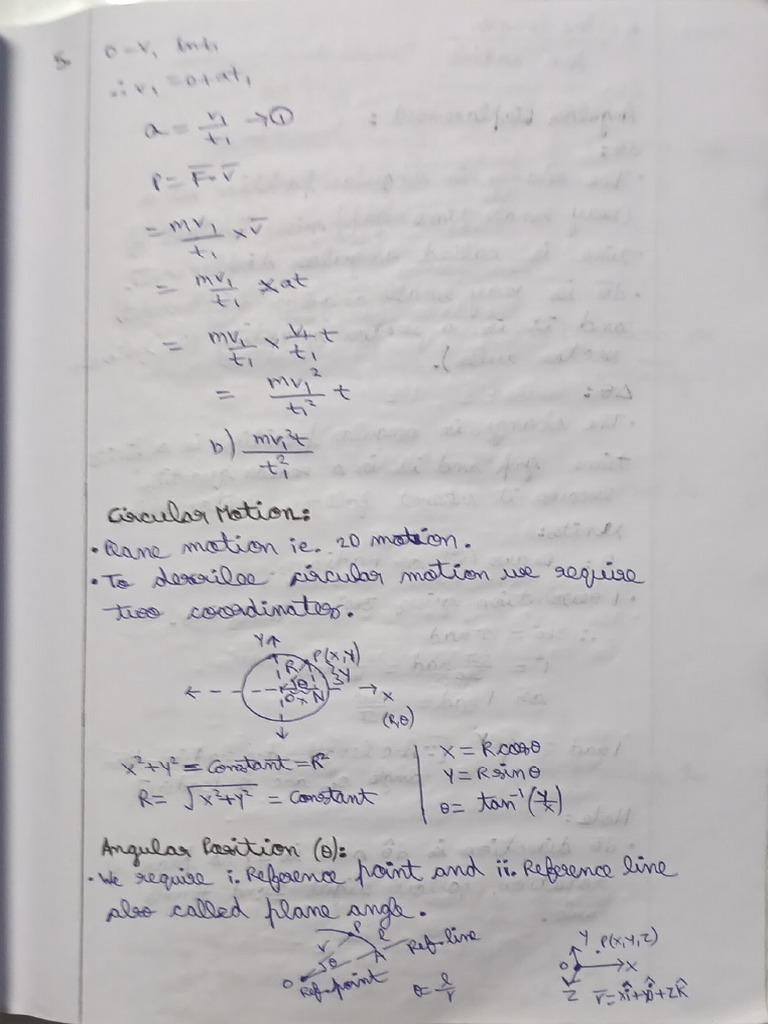 5.
0-v₁ in t₁
∴ v₁ = 0+at₁
a = v₁/t₁ → ①
P = F̅. v̅
= mv₁/t₁ × v̅
= mv₁/t₁ × at
= mv₁/t₁ × v₁/t₁ t
= mv₁²/t₁² t
b) mv₁²t/t₁²
Circular Motion:
• Plane motion ie. 2D motion.
• To describe circular motion we require
two coordinates.
Y
P(X,Y)
R
θ
Y
O X N
X
(R,θ)
X²+Y² = constant = R²
R = √X²+Y² = constant
X = R cosθ
Y = R sinθ
θ = tan⁻¹(Y/X)
Angular Position (θ):
• We require i. Reference point and ii. Reference line
also called plane angle.
P
r
θ
l
A
Ref. line
O
Ref. point
θ = l/r
Y
P(X,Y,Z)
O
X
Z
r̅ = xî+yĵ+zk̂